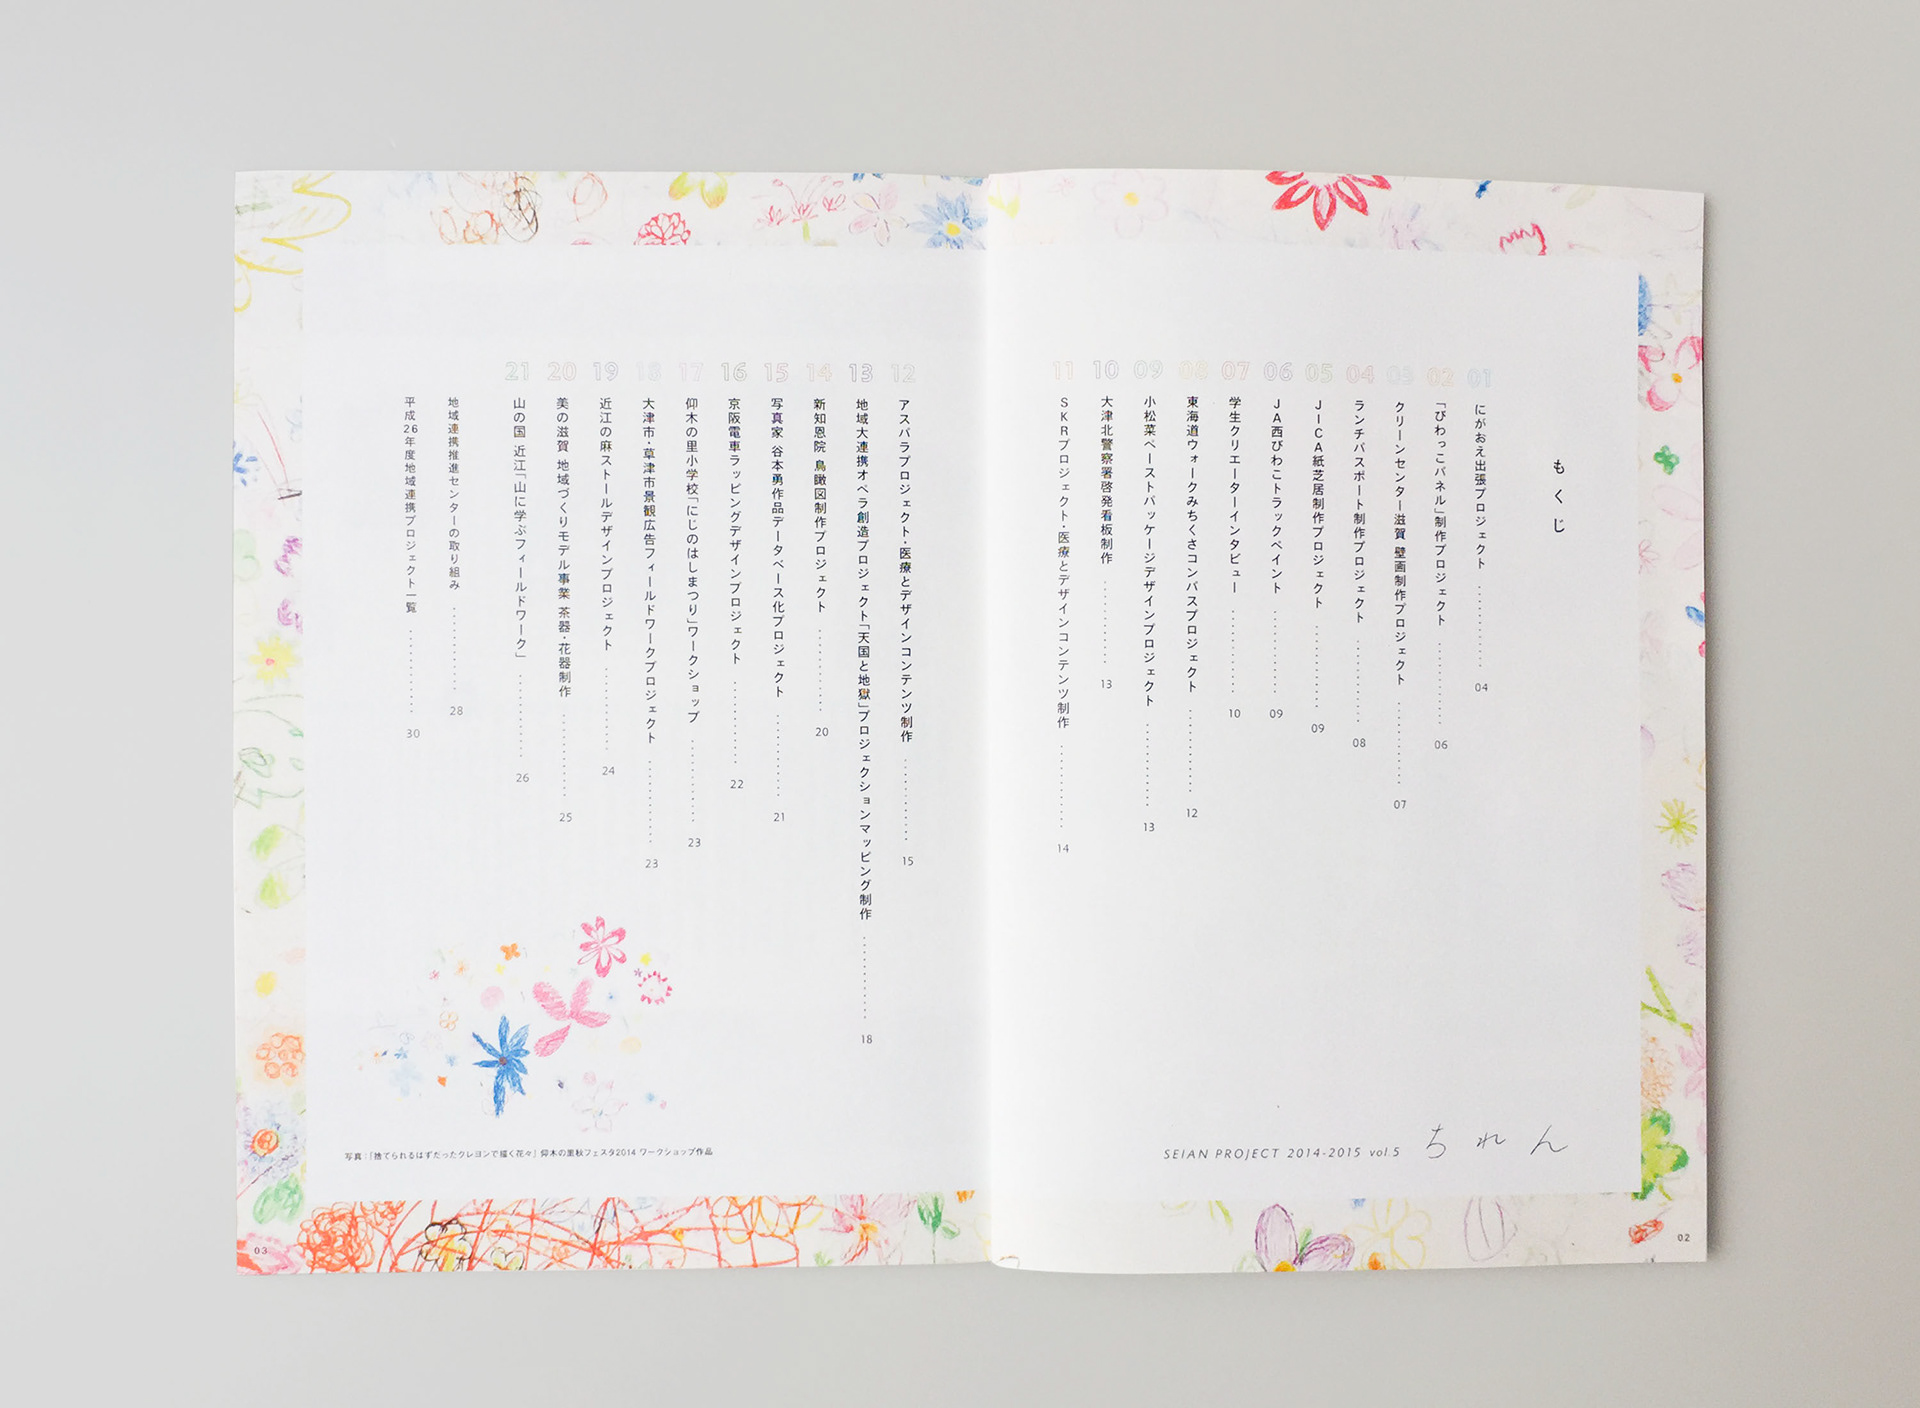 もくじ
01 にがおえ出張プロジェクト ………… 04
02 「びわっこパネル」制作プロジェクト ………… 06
03 クリーンセンター滋賀 壁画制作プロジェクト ………… 07
04 ランチパスポート制作プロジェクト ………… 08
05 JICA紙芝居制作プロジェクト ………… 09
06 JA西びわこトラックペイント ………… 09
07 学生クリエーターインタビュー ………… 10
08 東海道ウォークみちくさコンパスプロジェクト ………… 12
09 小松菜ペーストパッケージデザインプロジェクト ………… 13
10 大津北警察署啓発看板制作 ………… 13
11 SKRプロジェクト・医療とデザインコンテンツ制作 ………… 14
SEIAN PROJECT 2014-2015 vol.5 ちれん
02
12 アスパラプロジェクト・医療とデザインコンテンツ制作 ………… 15
13 地域大連携オペラ創造プロジェクト「天国と地獄」プロジェクションマッピング制作 ………… 18
14 新知恩院 鳥瞰図制作プロジェクト ………… 20
15 写真家 谷本勇作品データベース化プロジェクト ………… 21
16 京阪電車ラッピングデザインプロジェクト ………… 22
17 仰木の里小学校「にじのはしまつり」ワークショップ ………… 23
18 大津市・草津市景観広告フィールドワークプロジェクト ………… 23
19 近江の麻ストールデザインプロジェクト ………… 24
20 美の滋賀 地域づくりモデル事業 茶器・花器制作 ………… 25
21 山の国 近江「山に学ぶフィールドワーク」 ………… 26
地域連携推進センターの取り組み ………… 28
平成26年度地域連携プロジェクト一覧 ………… 30
写真：「捨てられるはずだったクレヨンで描く花々」仰木の里秋フェスタ2014 ワークショップ作品
03